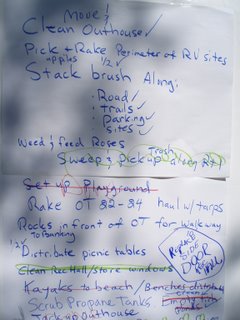 Move &
Clean Outhouse ✓
Pick + Rake Perimeter of RV sites
apples 1/2 ✓
Stack brush Along:
· Road ✓
· Trails ✓
· Parking ✓
· sites ✓
Weed & feed Roses
Trash
Sweep & Pick up along Rd 1
Set up Playground
Rake OT 82-84 haul w/ tarps
Rocks in front of OT for walkway
To Banking
Distribute picnic tables
Clean Rec Hall/store windows
Kayaks to beach / Benches distribute
Scrub Propane Tanks
Jack up outhouse
SIDE
DOOR